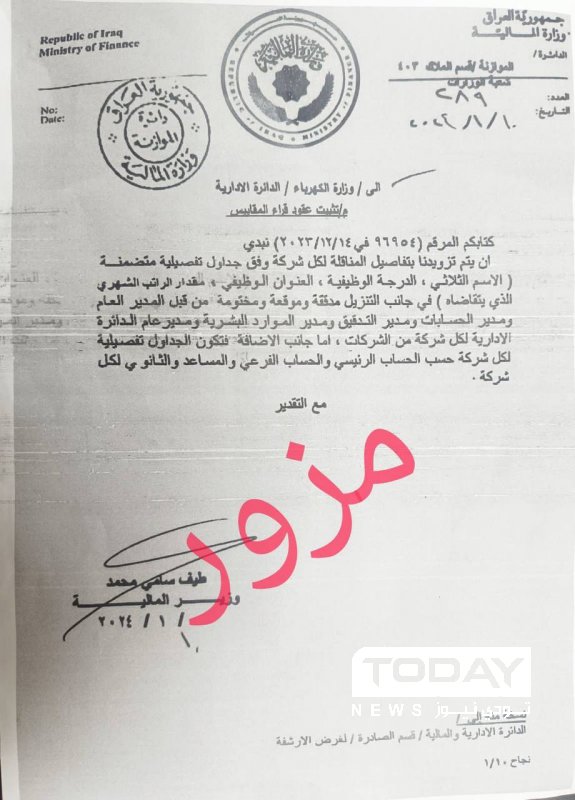 جمهورية العراق
وزارة المالية
Republic of Iraq
Ministry of Finance
الدائرة/
الموازنة /قسم الملاك ٤٠٣
شعبة الوزارات
No:
Date:
العدد: ٢٨٩
التاريخ:
جمهورية العراق
دائرة
الموازنة
وزارة المالية
الى / وزارة الكهرباء / الدائرة الادارية
م/تثبيت عقود قراء المقاييس
كتابكم المرقم (٩٦٩٥٤ في ٢٠٢٣/١٢/١٤) نبدي
ان يتم تزويدنا بتفاصيل المناقلة لكل شركة وفق جداول تفصيلية متضمنة
( الاسم الثلاثي ، الدرجة الوظيفية ، العنوان الوظيفي ، مقدار الراتب الشهري
الذي يتقاضاه ) في جانب التنزيل مدققة وموقعة ومختومة من قبل المدير العام
ومدير الحسابات ومدير التدقيق ومدير الموارد البشرية ومدير عام الدائرة
الادارية لكل شركة من الشركات ، اما جانب الاضافة فتكون الجداول تفصيلية
لكل شركة حسب الحساب الرئيسي والحساب الفرعي والمساعد والثانوي لكل
شركة .
مع التقدير
مزور
طيف سامي محمد
وزير المالية
١٠ / ١ / ٢٠٢٤
TODAY
NEWS تودي نيوز
نسخة منه إلى /
الدائرة الادارية والمالية / قسم الصادرة / لغرض الارشفة
نجاح ١/١٠